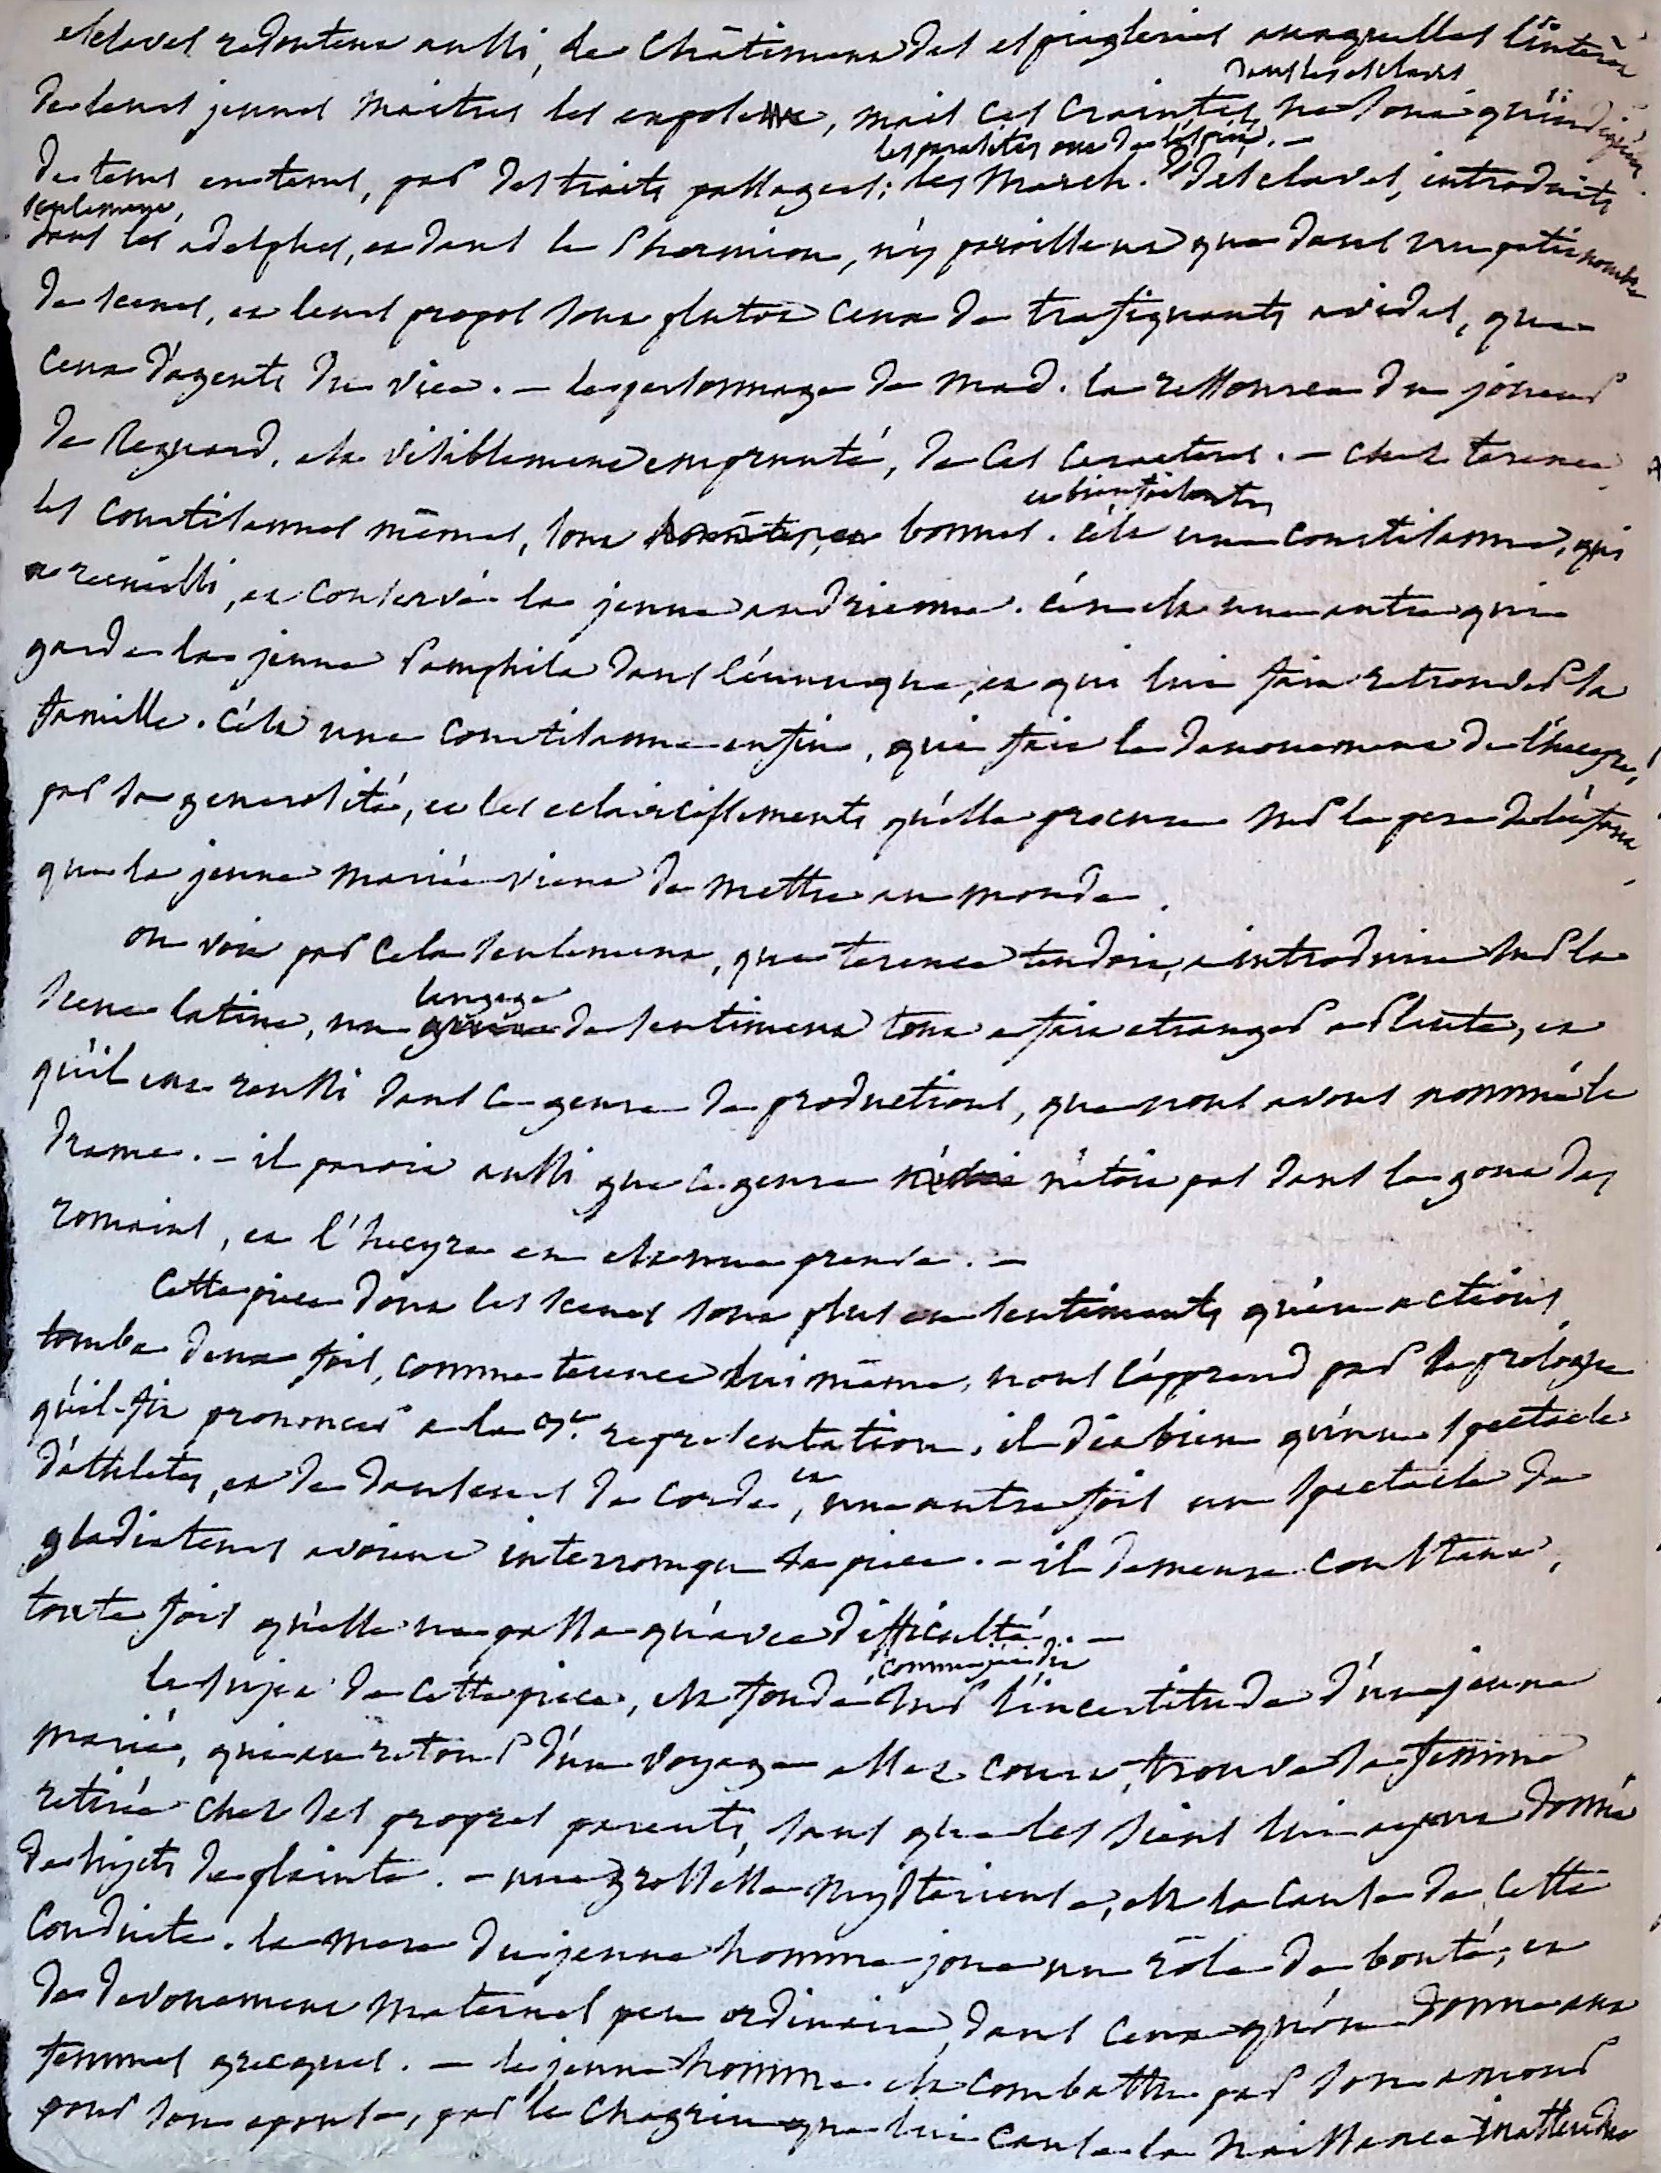 esclaves redoutent aussi, le chatiment des espiegleries auxquelles l'interêt
de leurs jeunes maitres les expose, mais ces craintes dans les esclaves ne sont qu'indiquées
de tems en tems, par des traits passagers; les parasites ont de l'esprit. – les march. d'esclaves, introduits
seulement dans les adelphes, et dans le Phormion, n'y paroissent que dans un petit nombre
de scenes, et leurs propos sont plutot ceux de trafiquants avides, que
ceux d'agents du vice. – le personnage de Mad. la ressource du joueur
de Regnard, est visiblement emprunté, de ces caracteres. – chez terence
les courtisannes mêmes, sont bonnes et bienfaisantes. c'est une courtisanne, qui
a recueilli, et conservé la jeune andrienne. c'en est une autre qui
garde la jeune Pamphile dans l'eunuque, et qui lui fait retrouver sa
famille. c'est une courtisanne enfin, qui fait le denouement de l'hecyre,
par sa generosité, et les eclaircissements qu'elle procure sur le pere de l'enfant
que la jeune mariée vient de mettre au monde.
on voit par cela seulement, que terence tendoit, a introduire sur la
scene latine, un langage de sentiment tout a fait etranger a Plaute, et
qu'il eut reussi dans ce genre de productions, que nous avons nommé le
drame. – il paroit aussi que ce genre n'etoit pas dans le gout des
romains, et l'hecyre en est une preuve. –
Cette piece dont les scenes sont plus en sentiments qu'en actions
tomba deux fois, comme terence lui même, nous l'apprend par le prologue
qu'il fit prononcer a la 3e. representation. il dit bien qu'un spectacle
d'athletes, et de danseurs de corde, et une autre fois un spectacle de
gladiateurs avoient interrompu sa piece. – il demeure constant,
toute fois qu'elle ne passa qu'avec difficulté. –
le sujet de cette piece, est fondé sur l'incertitude d'un jeune
marié, qui au retour d'un voyage assez court, trouve sa femme
retirée chez ses propres parents, sans que les siens lui ayent donné
de sujets de plainte. – une grossesse mysterieuse, est la cause de cette
conduite. la mere du jeune homme joue un rôle de bonté, et
de devouement maternel peu ordinaire, dans ceux qu'on donne aux
femmes grecques. – le jeune homme est combattu par son amour
pour son epouse, par le chagrin que lui cause la naissance inattendue